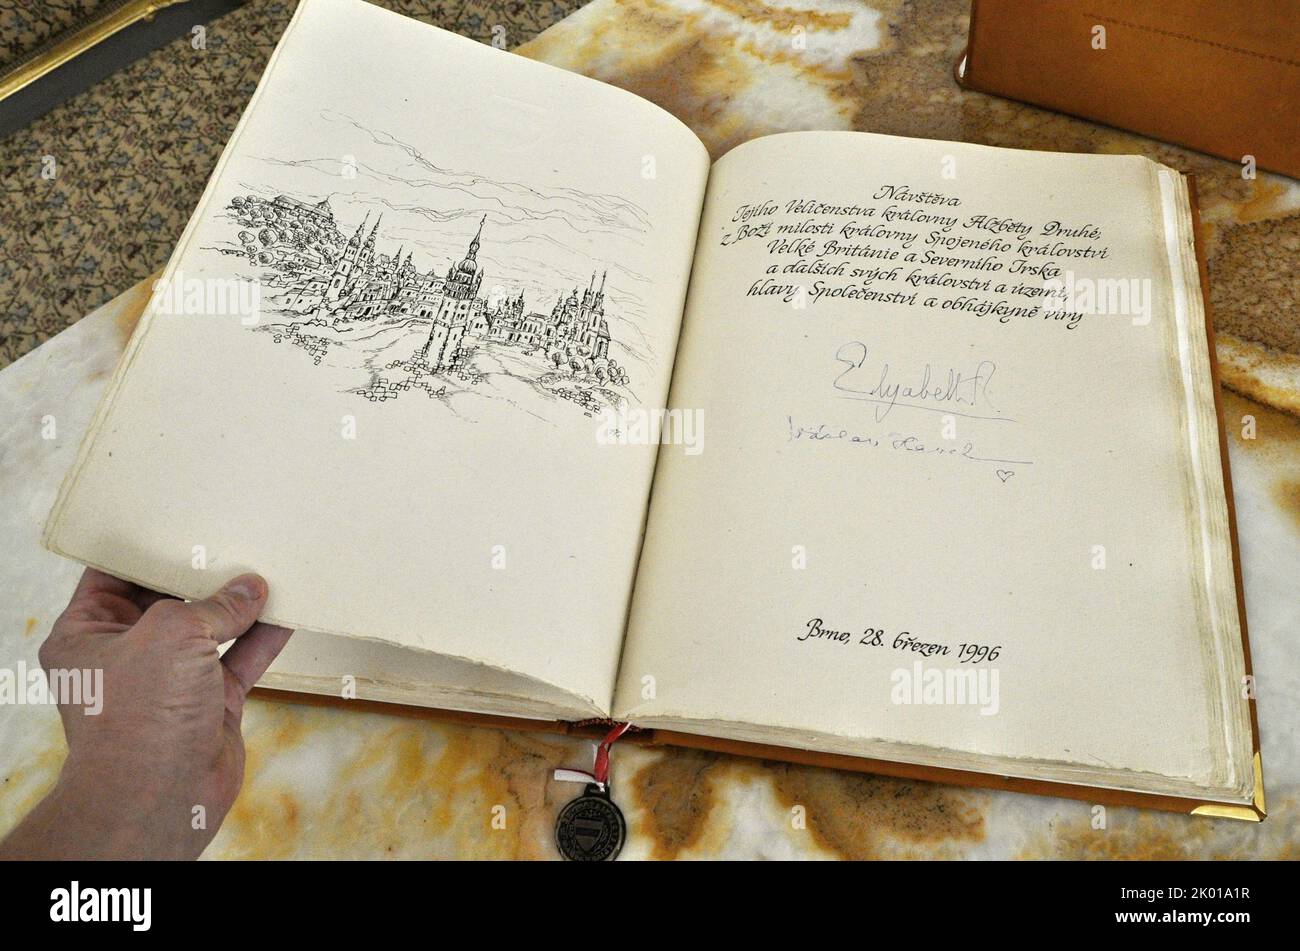 Návštěva
Jejího Veličenstva královny Alžběty Druhé,
z Boží milosti královny Spojeného království
Velké Británie a Severního Irska
a dalších svých království a území,
hlavy Společenství a obhájkyně víry
Elizabeth R.
Václav Havel
Brno, 28. březen 1996
alamy
Image ID: 2K01A1R
www.alamy.com